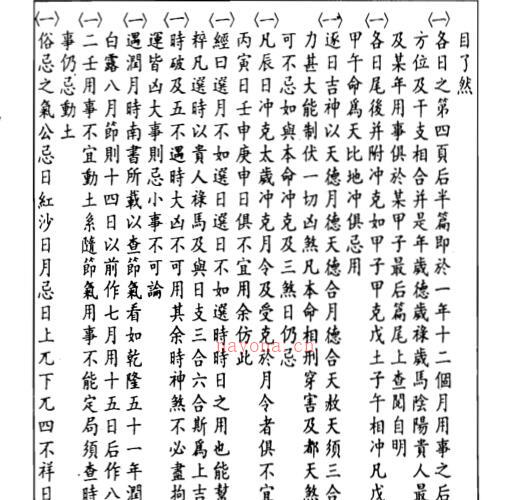 目了然
㈠各日之第四頁后半篇即於一年十二個月用事之后
方位及干支相合并是年歲德歲祿歲馬陰陽貴人最
及某年用事俱於某甲子最后篇尾上查閱自明
㈠各日尾後并附冲克如甲子甲克戊土子午相冲凡戊
甲午命爲天比地冲俱忌用
㈠逐日吉神以天德月德天德合月德合天赦天須三合
力甚大能制伏一切凶煞凡本命相刑穿害及都天煞
可不忌如與本命冲克及三煞日仍忌
㈠凡辰日冲克太歲冲克月令及受克於月令者俱不宜
丙寅日壬申庚申日俱不宜用余仿此
㈠經曰選月不如選日選日不如選時時日之用也能幫
粹凡選時以貴人祿馬及與日支三合六合斯爲上吉
㈠時破及五不遇時大凶不可用其余時神煞不必盡拘
運皆凶大事則忌小事不可論
㈠遇潤月時南書所載以查節氣看如乾隆五十一年潤
白露八月節則十四日以前作七月用十五日后作八
㈠二壬用事不宜動土系隨節氣用事不能定局須查時
事仍忌動土
㈠俗忌之氣公忌日紅沙日月忌日上兀下兀四不祥日
nayona.cn